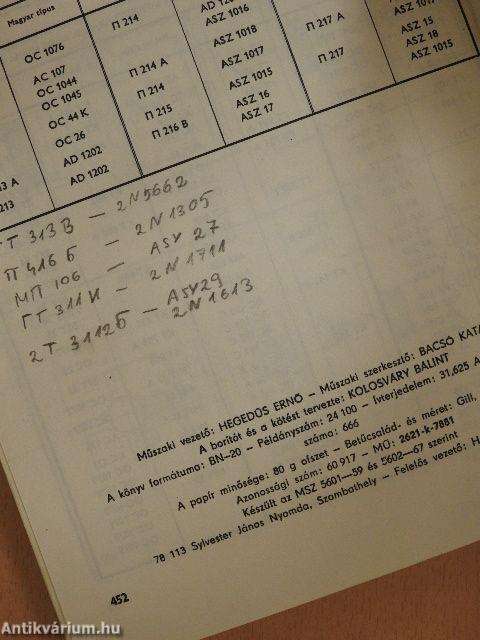 Magyar típus
OC 1076
AC 107
OC 1044
OC 1045
OC 44 K
OC 26
AD 1202
AD 1202
П 214
П 214 A
П 214
П 215
П 216 B
ASZ 1016
ASZ 1018
ASZ 1017
ASZ 1015
ASZ 16
ASZ 17
П 217 A
П 217
ASZ 1017
ASZ 15
ASZ 18
ASZ 1015
213
Т 313 В – 2N5662
П 416 Б – 2N1305
МП 106 – ASY 27
ГТ 311И – 2N1711
2Т 3112Б – ASY29
2N1613
Műszaki vezető: HEGEDŰS ERNŐ – Műszaki szerkesztő: BACSÓ
A borítót és a kötést tervezte: KOLOSVÁRY BÁLINT
A könyv formátuma: BN–20 – Példányszám: 24 100 – Ívterjedelem: 31,625
száma: 666
A papír minősége: 80 g ofszet – Betűcsalád- és méret: Gill,
Azonossági szám: 60 917 – MÜ: 2621-k-7881
Készült az MSZ 5601—59 és 5602—67 szerint
78 113 Sylvester János Nyomda, Szombathely – Felelős vezető: H
452
Antikvárium.hu